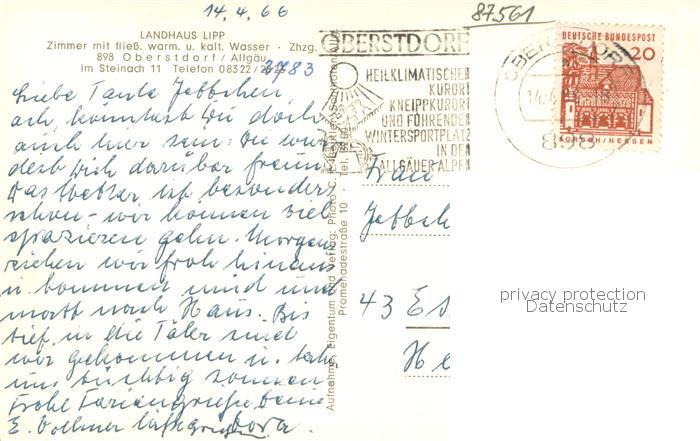 14.4.66
87.561
LANDHAUS LIPP
Zimmer mit fließ. warm. u. kalt. Wasser · Zhzg.
898 Oberstdorf/Allgäu
Im Steinach 11 Telefon 08322/2783
OBERSTDORF
HEILKLIMATISCHER
KURORT
KNEIPPKURORT
UND FÜHRENDER
WINTERSPORTPLATZ
IN DEN
ALLGÄUER ALPEN
DEUTSCHE BUNDESPOST
20
LORSCH/HESSEN
OBERSTDORF
898
Liebe Tante Jettchen
ach, könntest Du doch
auch hier sein! Du würdest Dich darüber freuen
Das Wetter ist besonders
schön – wir können viel
spazieren gehn. Morgens
ziehen wir froh hinaus
u. kommen müd und
matt nach Haus. Bis
tief in die Täler sind
wir gekommen u.
uns tüchtig sonnen
Frohe Feriengrüße Deine
E. Vollmer Dora
Frau
Jettche
43 Es
He
Aufnahme, Eigentum und Verlag: Photo
Promenadestraße 10 · Tel.
privacy protection
Datenschutz